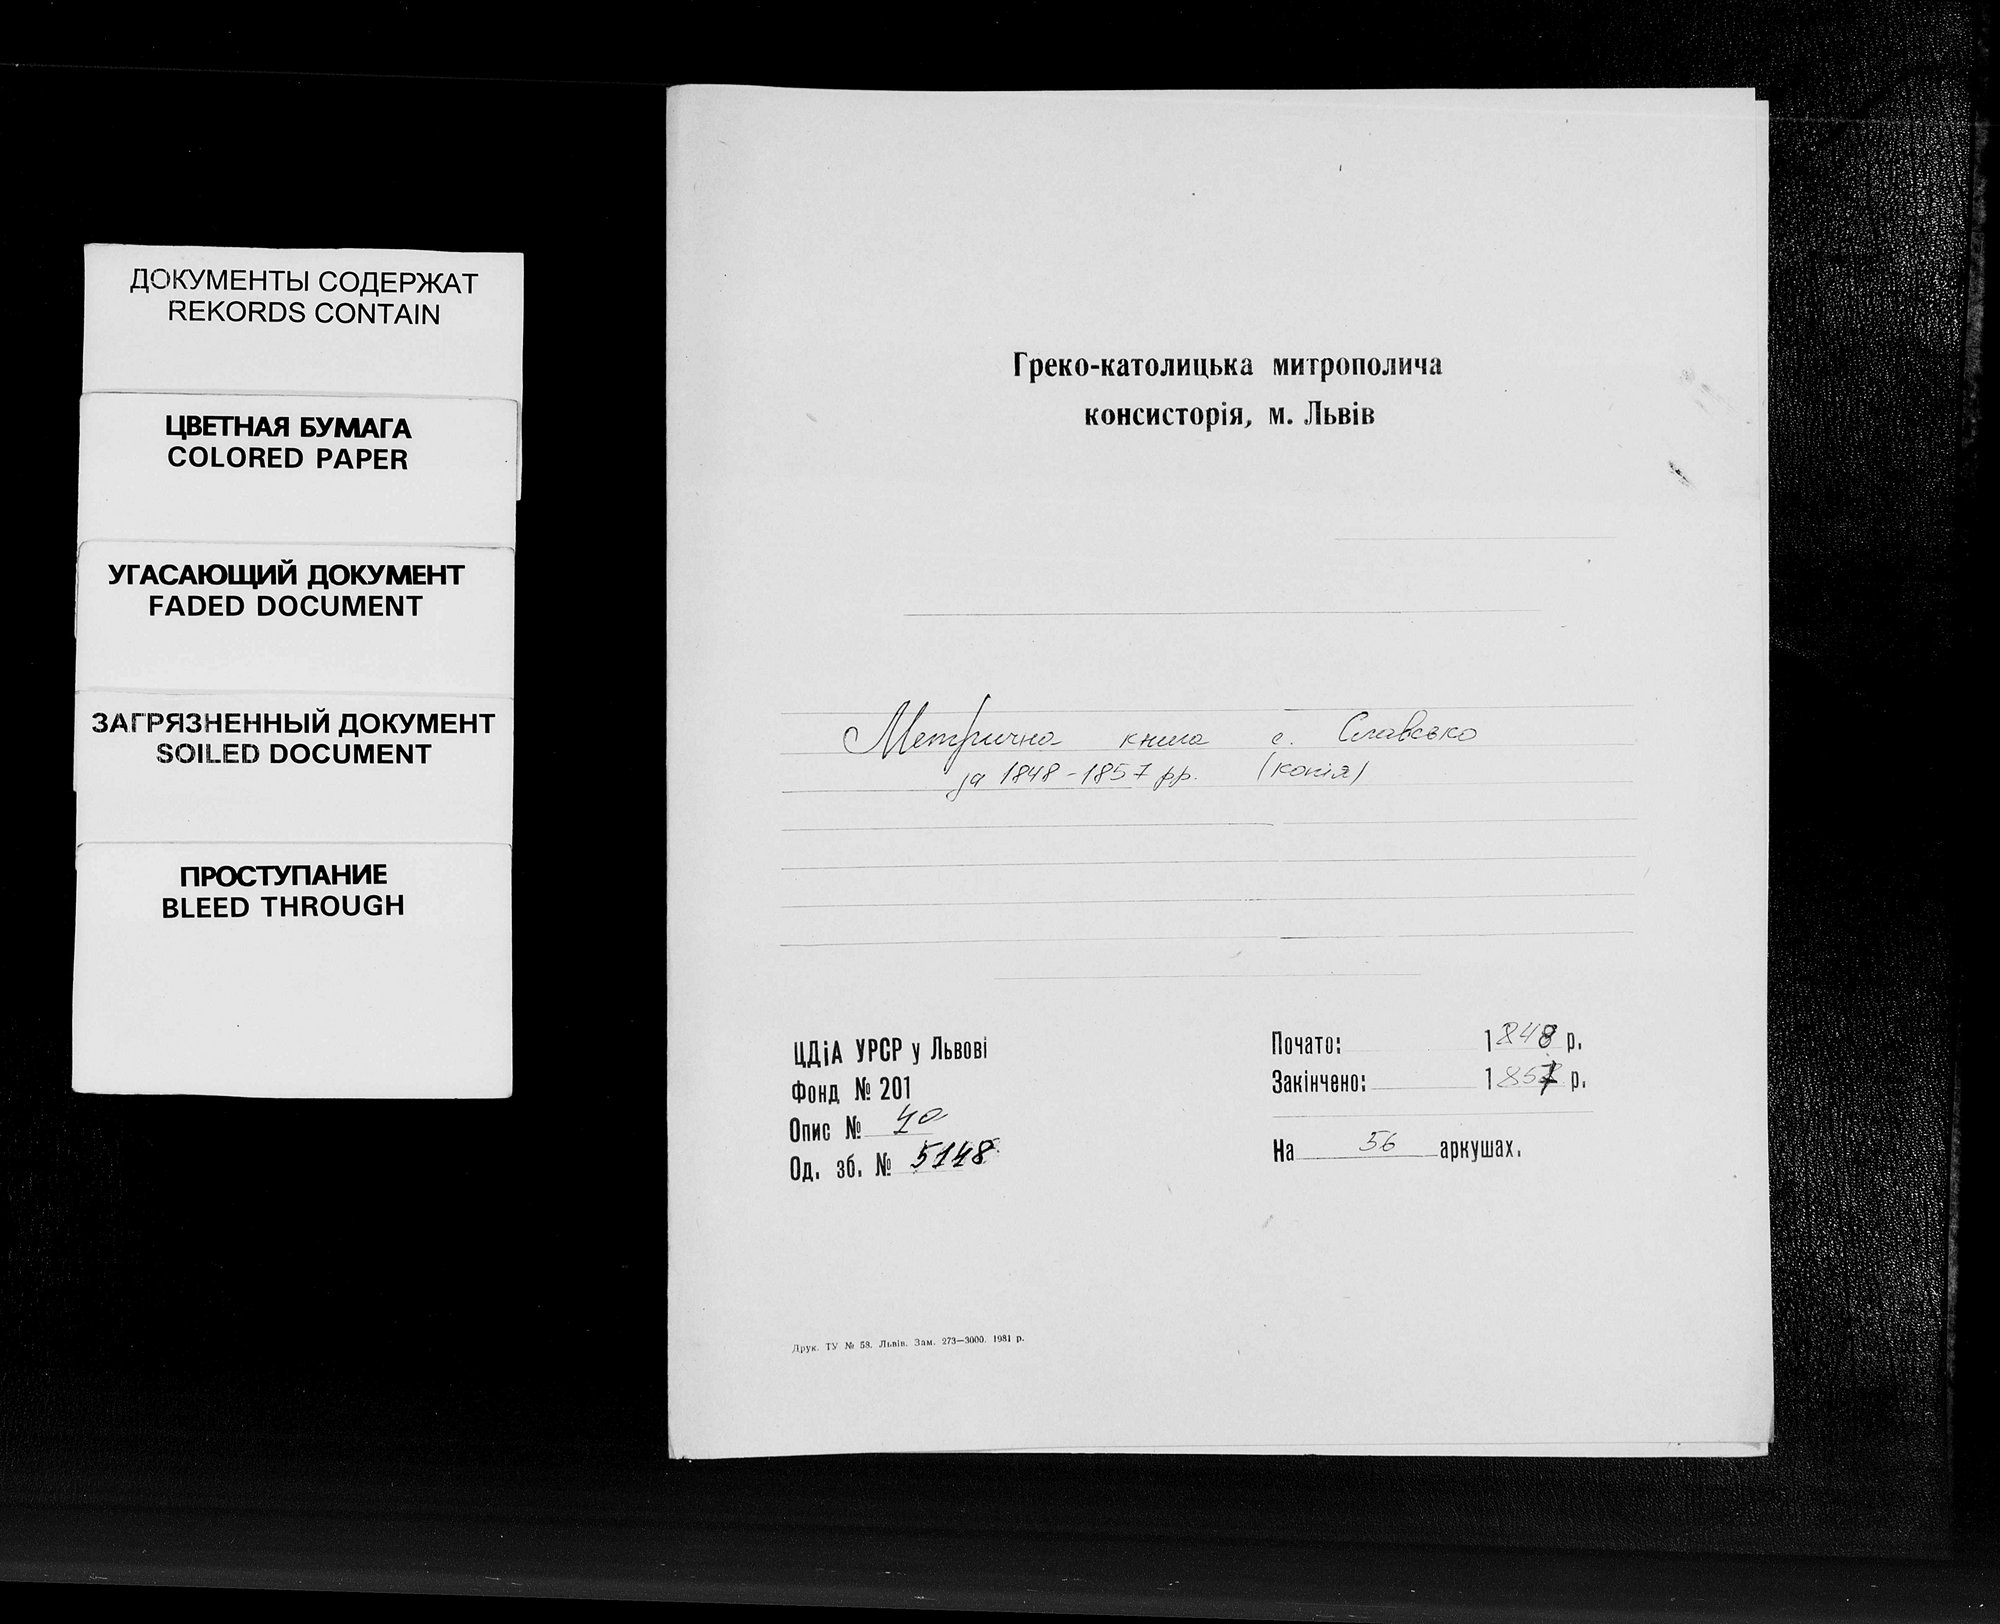 ДОКУМЕНТЫ СОДЕРЖАТ
REKORDS CONTAIN
ЦВЕТНАЯ БУМАГА
COLORED PAPER
УГАСАЮЩИЙ ДОКУМЕНТ
FADED DOCUMENT
ЗАГРЯЗНЕННЫЙ ДОКУМЕНТ
SOILED DOCUMENT
ПРОСТУПАНИЕ
BLEED THROUGH
Греко-католицька митрополича
консисторія, м. Львів
Метрична книга с. Славсько
за 1848-1857 рр. (копія)
ЦДіА УРСР у Львові
Фонд № 201
Опис № 4а
Од. зб. № 5148
Почато: 1848 р.
Закінчено: 1857 р.
На 56 аркушах.
Друк. ТУ № 58. Львів. Зам. 273—3000. 1981 р.